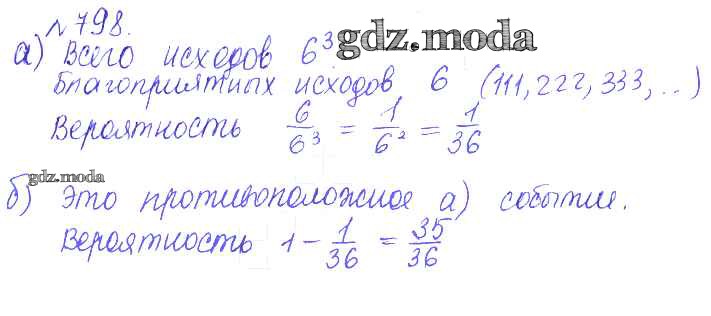 №798.
а) Всего исходов 6³ gdz.moda
Благоприятных исходов 6 (111, 222, 333, ...)
Вероятность 6/6³ = 1/6² = 1/36
gdz.moda
б) Это противоположное а) событие.
Вероятность 1 - 1/36 = 35/36